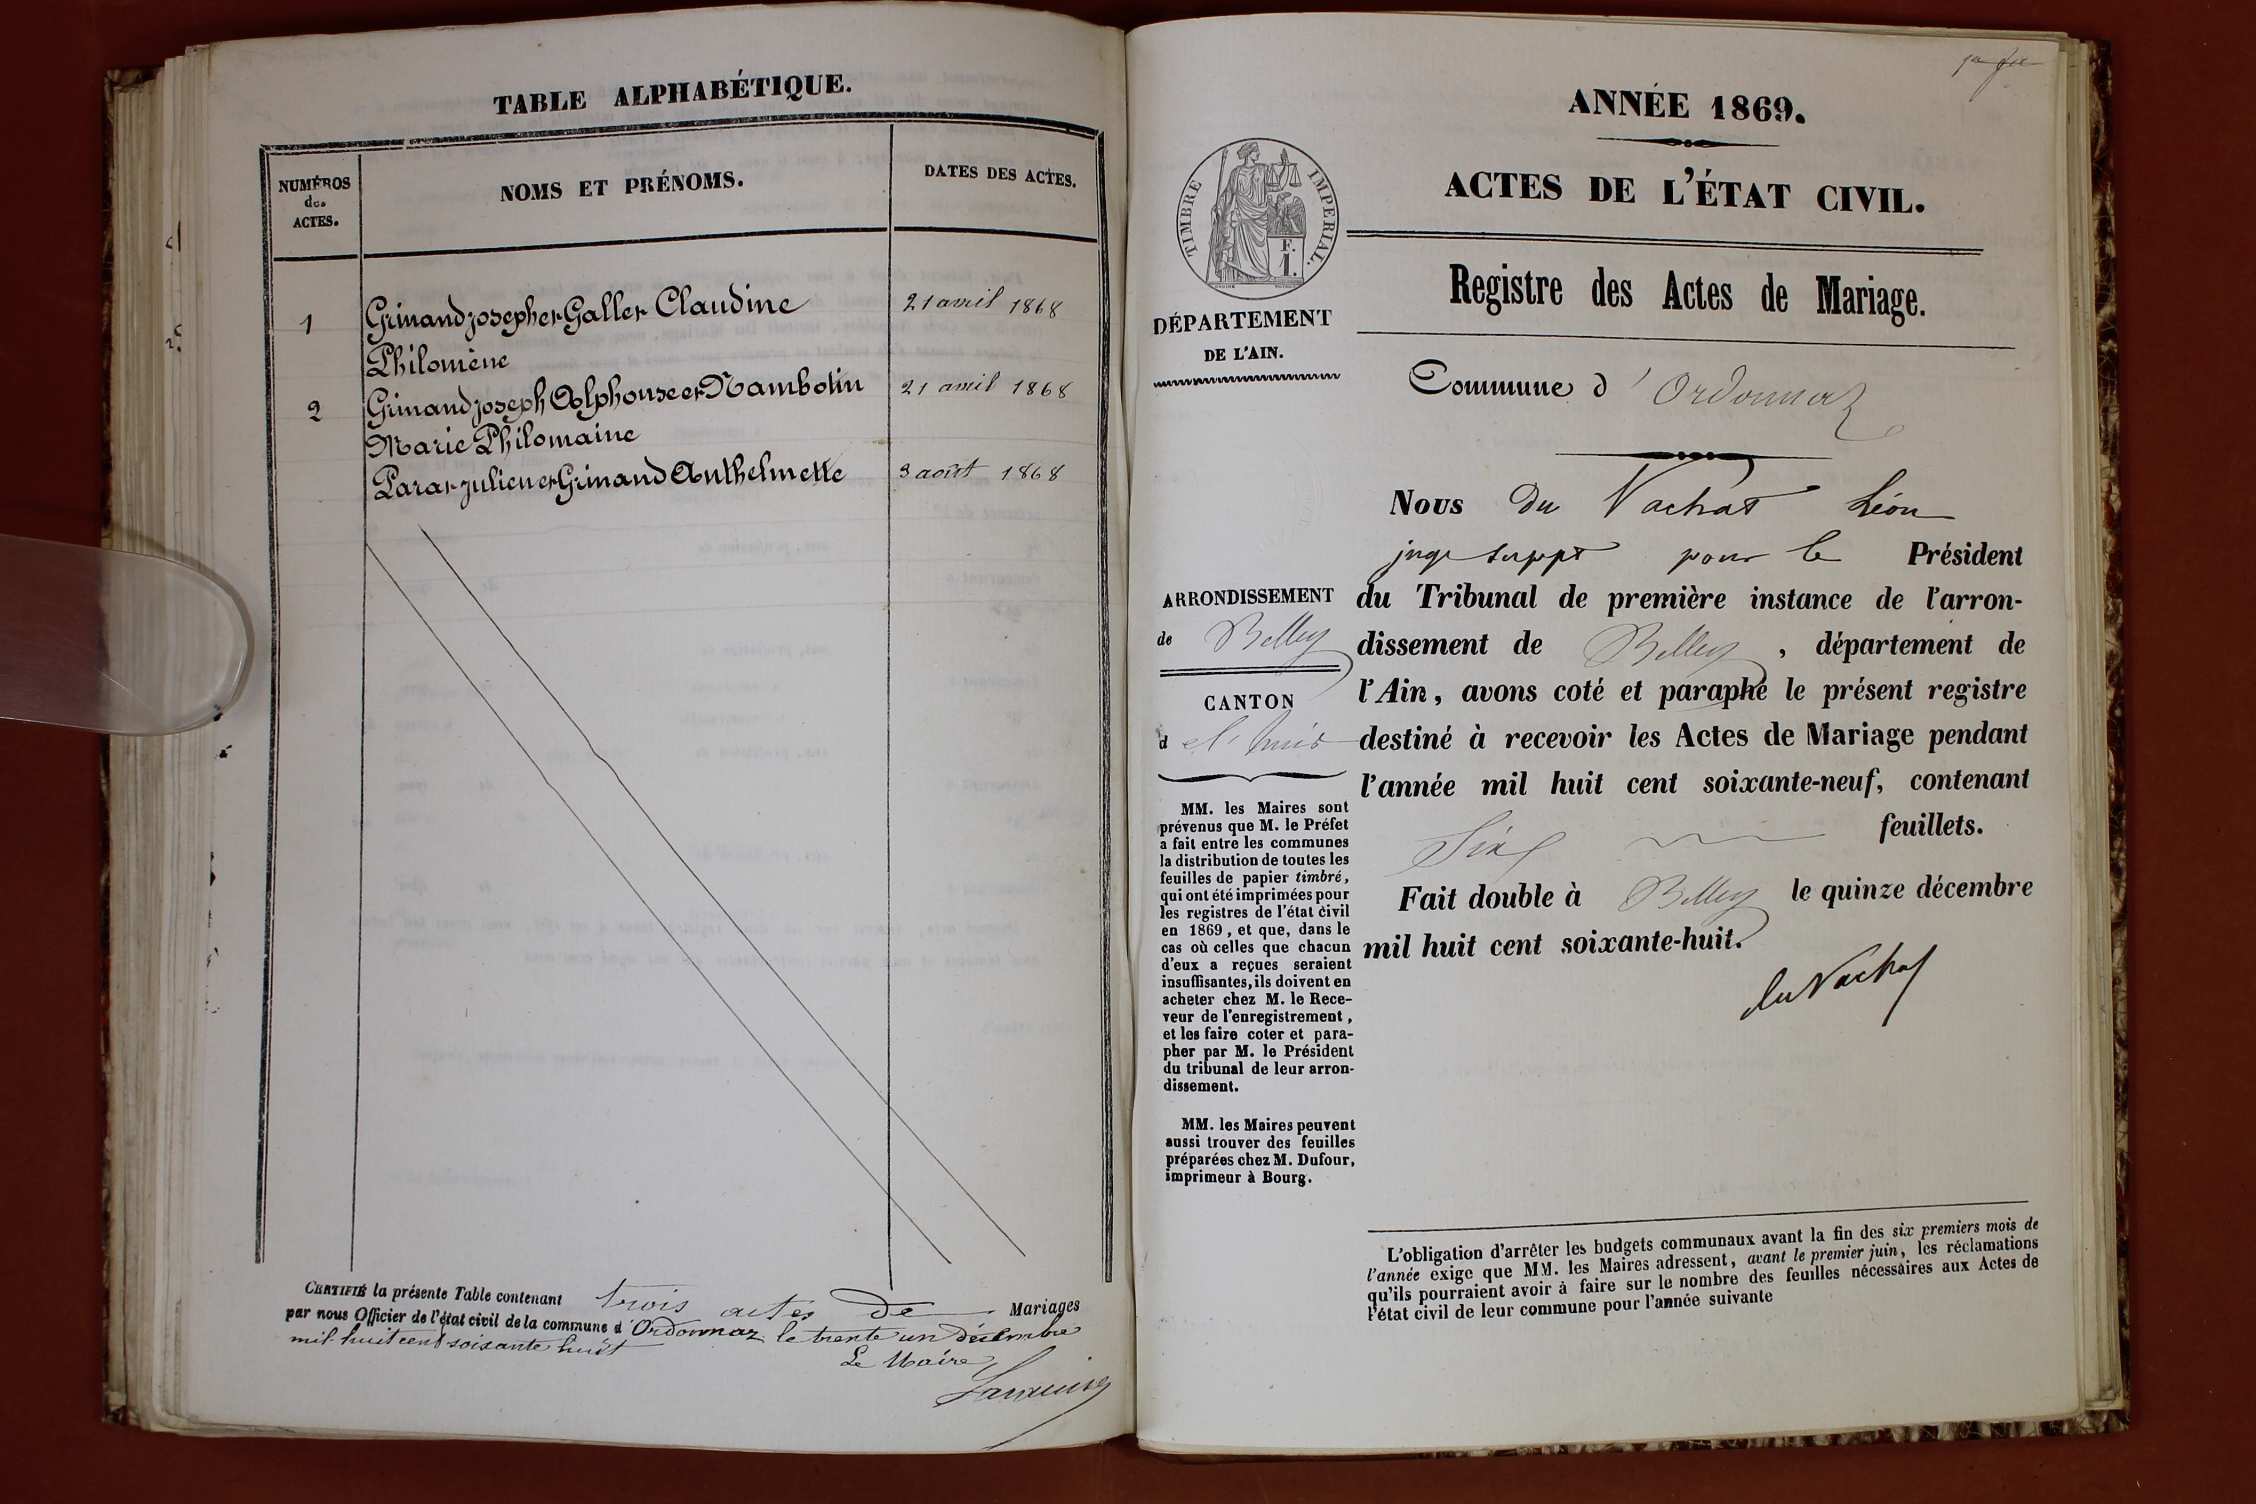 TABLE ALPHABÉTIQUE.
NUMÉROS
des
ACTES.
NOMS ET PRÉNOMS.
DATES DES ACTES.
1
Grinand joseph et Gallet Claudine
Philomène
21 avril 1868
2
Grinand joseph Alphonse et Nambotin
Marie Philomaine
21 avril 1868
Parat julien et Grinand Anthelmette
3 août 1868
CERTIFIÉ la présente Table contenant trois actes de Mariages
par nous Officier de l'état civil de la commune d'Ordonnaz le trente un décembre
mil huit cent soixante huit
Le Maire
ANNÉE 1869.
ACTES DE L'ÉTAT CIVIL.
TIMBRE IMPÉRIAL.
F.
1.
DÉPARTEMENT
DE L'AIN.
Registre des Actes de Mariage.
Commune d'Ordonnaz
Nous du Vachat Léon
juge suppt pour le Président
du Tribunal de première instance de l'arron-
dissement de Belley, département de
l'Ain, avons coté et paraphé le présent registre
destiné à recevoir les Actes de Mariage pendant
l'année mil huit cent soixante-neuf, contenant
Six feuillets.
Fait double à Belley le quinze décembre
mil huit cent soixante-huit.
du Vachat
ARRONDISSEMENT
de Belley
CANTON
d
MM. les Maires sont
prévenus que M. le Préfet
a fait entre les communes
la distribution de toutes les
feuilles de papier timbré,
qui ont été imprimées pour
les registres de l'état civil
en 1869, et que, dans le
cas où celles que chacun
d'eux a reçues seraient
insuffisantes, ils doivent en
acheter chez M. le Rece-
veur de l'enregistrement,
et les faire coter et para-
pher par M. le Président
du tribunal de leur arron-
dissement.
MM. les Maires peuvent
aussi trouver des feuilles
préparées chez M. Dufour,
imprimeur à Bourg.
L'obligation d'arrêter les budgets communaux avant la fin des six premiers mois de
l'année exige que MM. les Maires adressent, avant le premier juin, les réclamations
qu'ils pourraient avoir à faire sur le nombre des feuilles nécessaires aux Actes de
l'état civil de leur commune pour l'année suivante